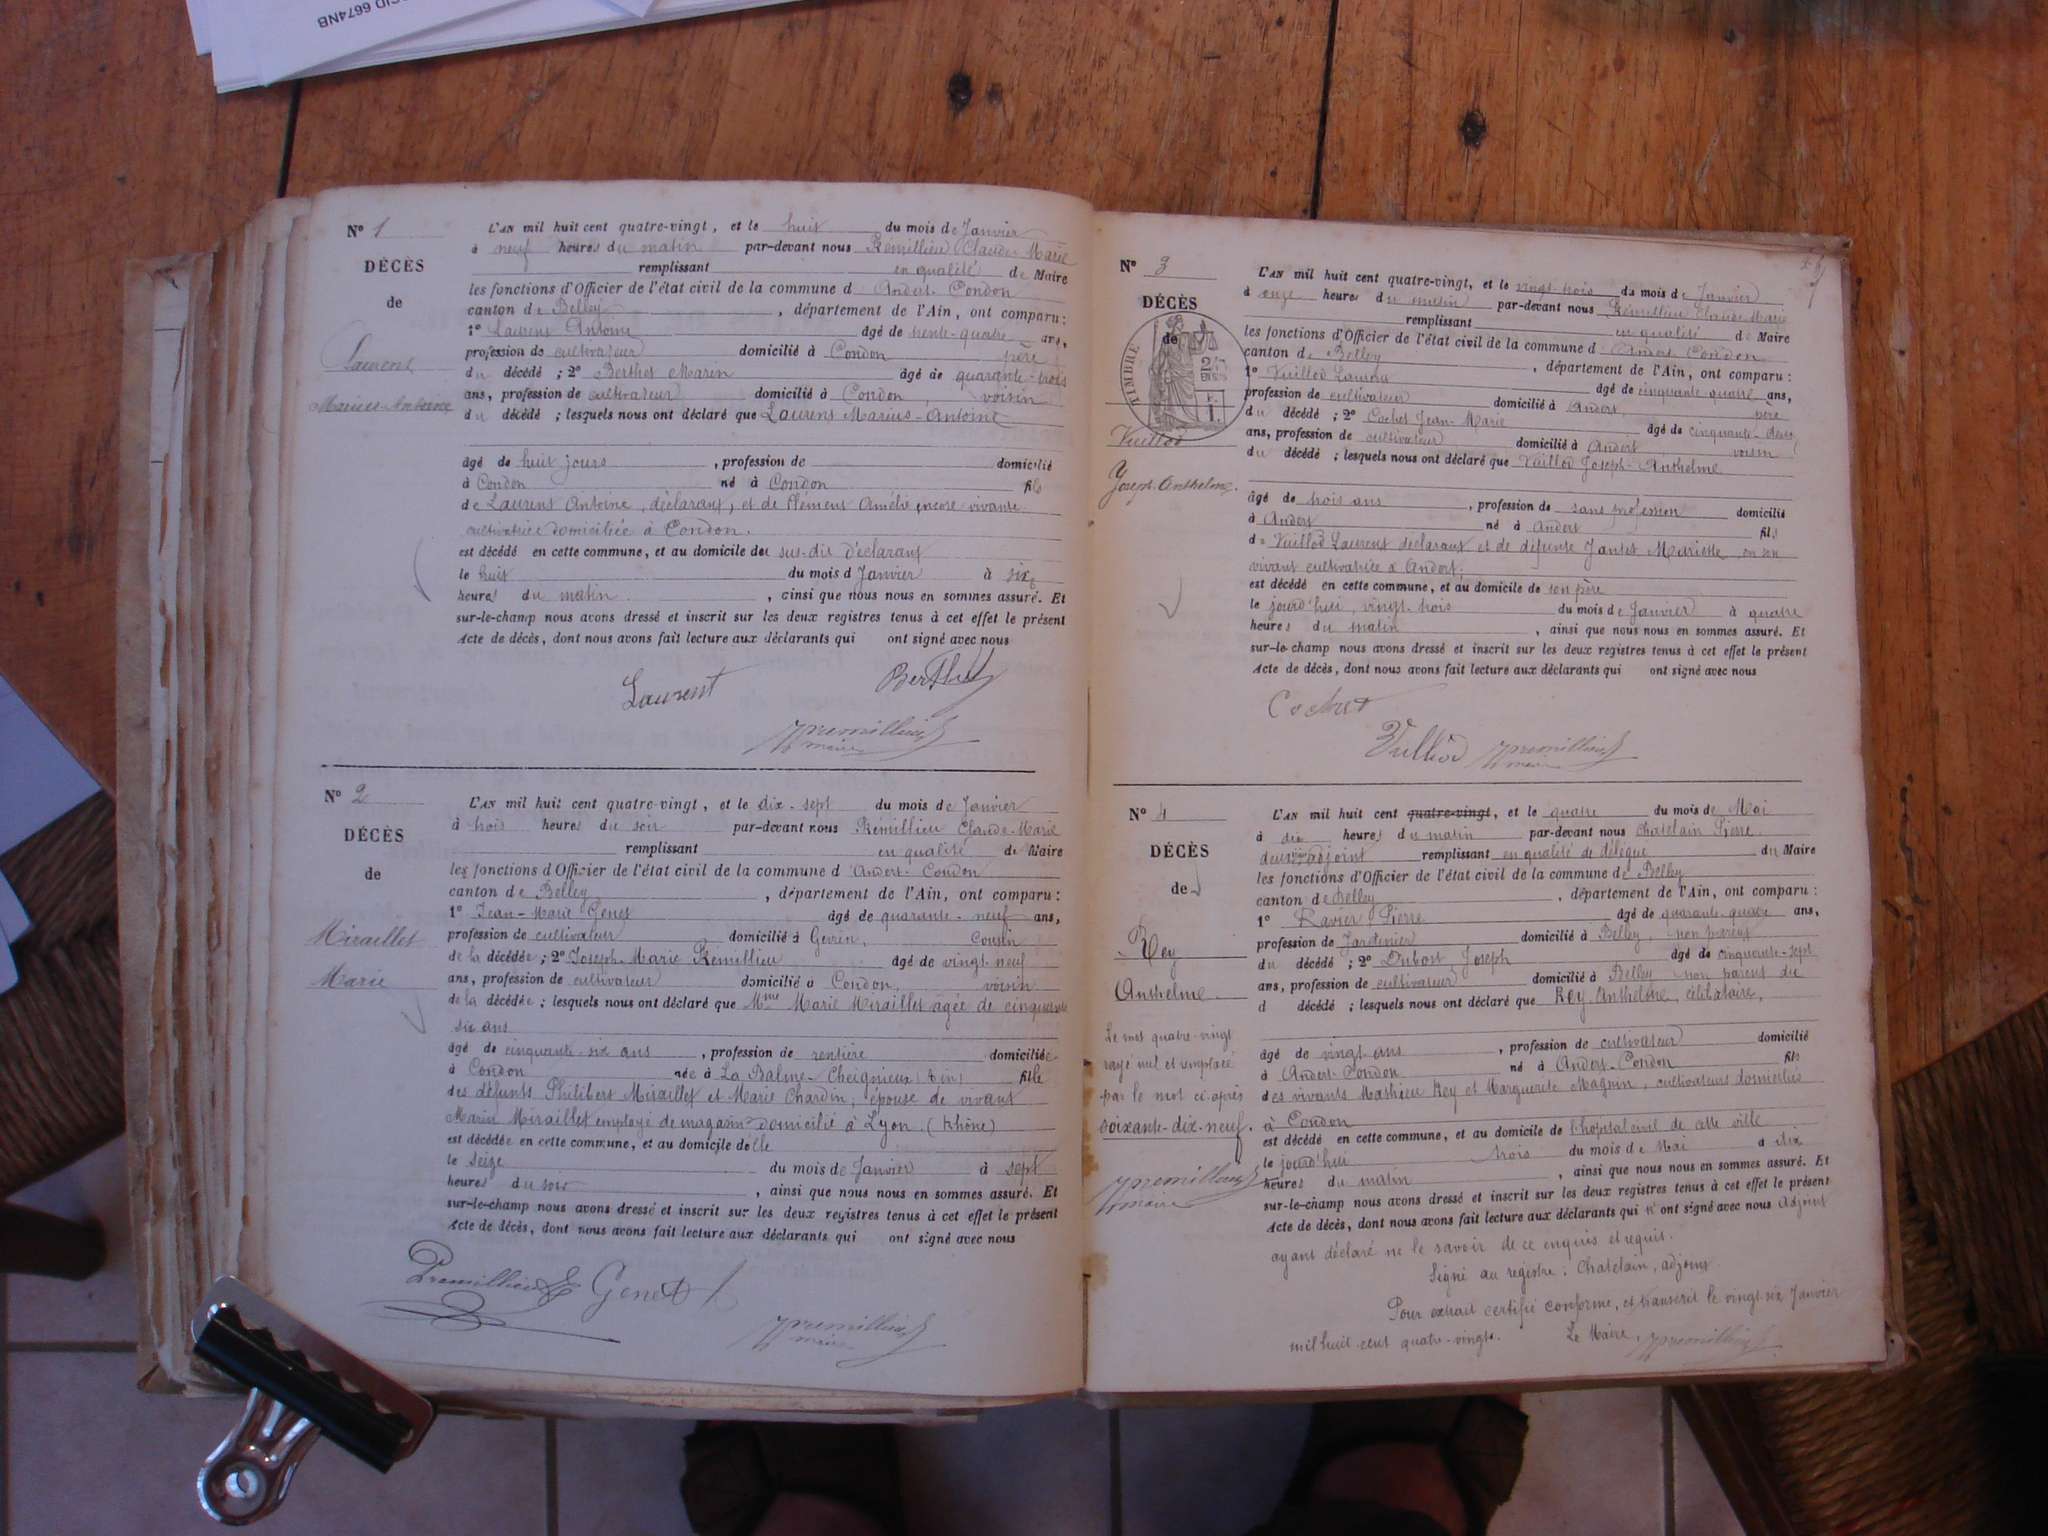 CID 6674NB
N° 1
DÉCÈS
de
Laurent
Marius-Antoine
L'AN mil huit cent quatre-vingt, et le huit du mois de Janvier
à neuf heures du matin par-devant nous Rémillieu Claude-Marie
remplissant en qualité de Maire
les fonctions d'Officier de l'état civil de la commune d'Andert-Condon
canton de Belley, département de l'Ain, ont comparu:
1° Laurent Antoine âgé de trente-quatre ans,
profession de cultivateur domicilié à Condon père
du décédé; 2° Berthet Marin âgé de quarante-trois
ans, profession de cultivateur domicilié à Condon, voisin
du décédé; lesquels nous ont déclaré que Laurent Marius-Antoine
âgé de huit jours, profession de domicilié
à Condon né à Condon fils
de Laurent Antoine, déclarant, et de Clément Amélie encore vivante
cultivatrice domiciliée à Condon.
est décédé en cette commune, et au domicile du sus-dit déclarant
le huit du mois d Janvier à six
heures du matin, ainsi que nous nous en sommes assuré. Et
sur-le-champ nous avons dressé et inscrit sur les deux registres tenus à cet effet le présent
Acte de décès, dont nous avons fait lecture aux déclarants qui ont signé avec nous
Laurent Berthet
Rémillieu
maire
N° 2
DÉCÈS
de
Miraillet
Marie
L'AN mil huit cent quatre-vingt, et le dix-sept du mois de Janvier
à trois heures du soir par-devant nous Rémillieu Claude-Marie
remplissant en qualité de Maire
les fonctions d'Officier de l'état civil de la commune d'Andert-Condon
canton de Belley, département de l'Ain, ont comparu:
1° Jean-Marie Genet âgé de quarante-neuf ans,
profession de cultivateur domicilié à Gevrin, Cousin
de la décédée; 2° Joseph-Marie Rémillieu âgé de vingt-neuf
ans, profession de cultivateur domicilié à Condon, voisin
de la décédée; lesquels nous ont déclaré que Mme Marie Miraillet agée de cinquante
six ans
âgé de cinquante-six ans, profession de rentière domiciliée
à Condon née à La Balme-Cheignieux (Ain) fille
des défunts Philibert Miraillet et Marie Chardin, épouse de vivant
Marin Miraillet employé de magasin domicilié à Lyon (Rhône)
est décédée en cette commune, et au domicile d'elle
le seize du mois de Janvier à sept
heures du soir, ainsi que nous nous en sommes assuré. Et
sur-le-champ nous avons dressé et inscrit sur les deux registres tenus à cet effet le présent
Acte de décès, dont nous avons fait lecture aux déclarants qui ont signé avec nous
Rémillieu Genet
Rémillieu
maire
N° 3
DÉCÈS
de
TIMBRE
Vuillod
Joseph-Anthelme.
L'AN mil huit cent quatre-vingt, et le vingt-trois du mois de Janvier
à onze heures du matin par-devant nous Rémillieu Claude-Marie
remplissant en qualité de Maire
les fonctions d'Officier de l'état civil de la commune d Andert-Condon
canton de Belley, département de l'Ain, ont comparu:
1° Vuillod Laurent âgé de cinquante quatre ans,
profession de cultivateur domicilié à Andert, père
du décédé; 2° Cochet Jean-Marie âgé de cinquante-deux
ans, profession de cultivateur domicilié à Andert voisin
du décédé; lesquels nous ont déclaré que Vuillod Joseph-Anthelme
âgé de trois ans, profession de sans profession domicilié
à Andert né à Andert fils
de Vuillod Laurent déclarant et de défunte Jantet Mariette, en son
vivant cultivatrice à Andert,
est décédé en cette commune, et au domicile de son père
le jourd'hui, vingt-trois du mois de Janvier à quatre
heures du matin, ainsi que nous nous en sommes assuré. Et
sur-le-champ nous avons dressé et inscrit sur les deux registres tenus à cet effet le présent
Acte de décès, dont nous avons fait lecture aux déclarants qui ont signé avec nous
Cochet
Vuilliod Rémillieu
maire
N° 4
DÉCÈS
de
Rey
Anthelme
Le mot quatre-vingt
rayé nul et remplacé
par le mot ci-après
soixante-dix-neuf.
Rémillieu
maire
L'AN mil huit cent quatre-vingt, et le quatre du mois de Mai
à dix heures du matin par-devant nous Chatelain Pierre
deuxième adjoint remplissant en qualité de délégué du Maire
les fonctions d'Officier de l'état civil de la commune de Belley
canton de Belley, département de l'Ain, ont comparu:
1° Ravier Pierre âgé de quarante-quatre ans,
profession de Jardinier domicilié à Belley, non parent
du décédé; 2° Dubost Joseph âgé de cinquante-sept
ans, profession de cultivateur domicilié à Belley non parent du
d décédé; lesquels nous ont déclaré que Rey Anthelme, célibataire,
âgé de vingt ans, profession de cultivateur domicilié
à Andert-Condon né à Andert-Condon fils
des vivants Mathieu Rey et Marguerite Magnin, cultivateurs domiciliés
à Condon
est décédé en cette commune, et au domicile de l'hôpital civil de cette ville
le jourd'hui trois du mois de Mai à dix
heures du matin, ainsi que nous nous en sommes assuré. Et
sur-le-champ nous avons dressé et inscrit sur les deux registres tenus à cet effet le présent
Acte de décès, dont nous avons fait lecture aux déclarants qui n'ont signé avec nous adjoint
ayant déclaré ne le savoir de ce enquis et requis.
Signé au registre: Chatelain, adjoint.
Pour extrait certifié conforme, et transcrit le vingt-six Janvier
mil huit-cent quatre-vingt. Le Maire, Rémillieu